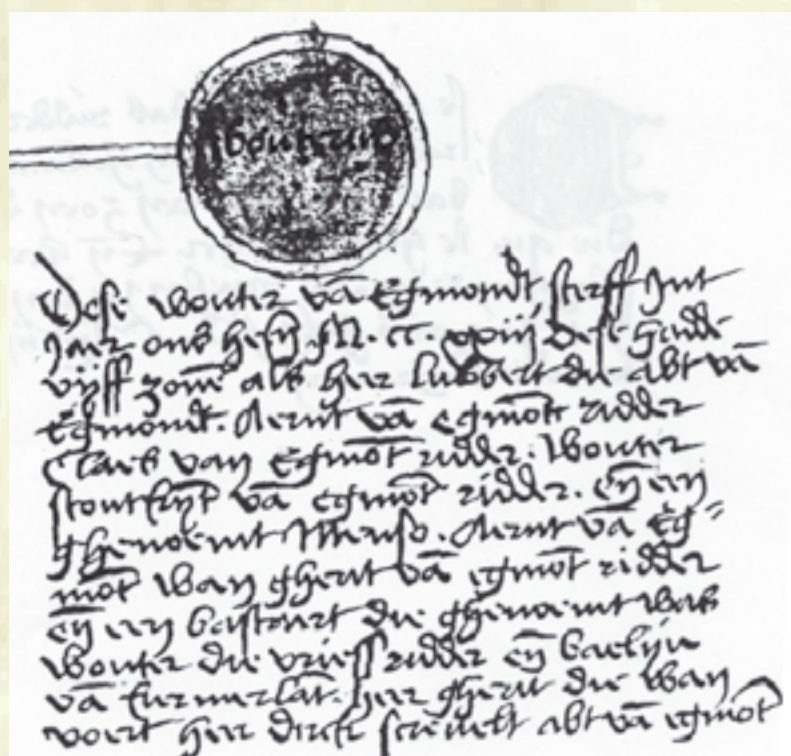 wouter
Dese wouter vā Egmondt sterff Int
Jaer ons heren M. CC. viij Dese hadde
vijff zonē als heer lubbert die abt vā
Egmondt. Aernt vā egmōt ridder
Claes van Egmōt ridder. Wouter
stoutkijt vā egmōt ridder. eñ een
ghenoemt Meruso. Aernt vā Eg=
mōt wan gherit vā egmōt ridder
eñ een bastaert die ghenoemt was
wouter die vriess ridder eñ baeliu
vā kermerlāt. heer gherit die wan
voert heer dirck abt vā egmōt